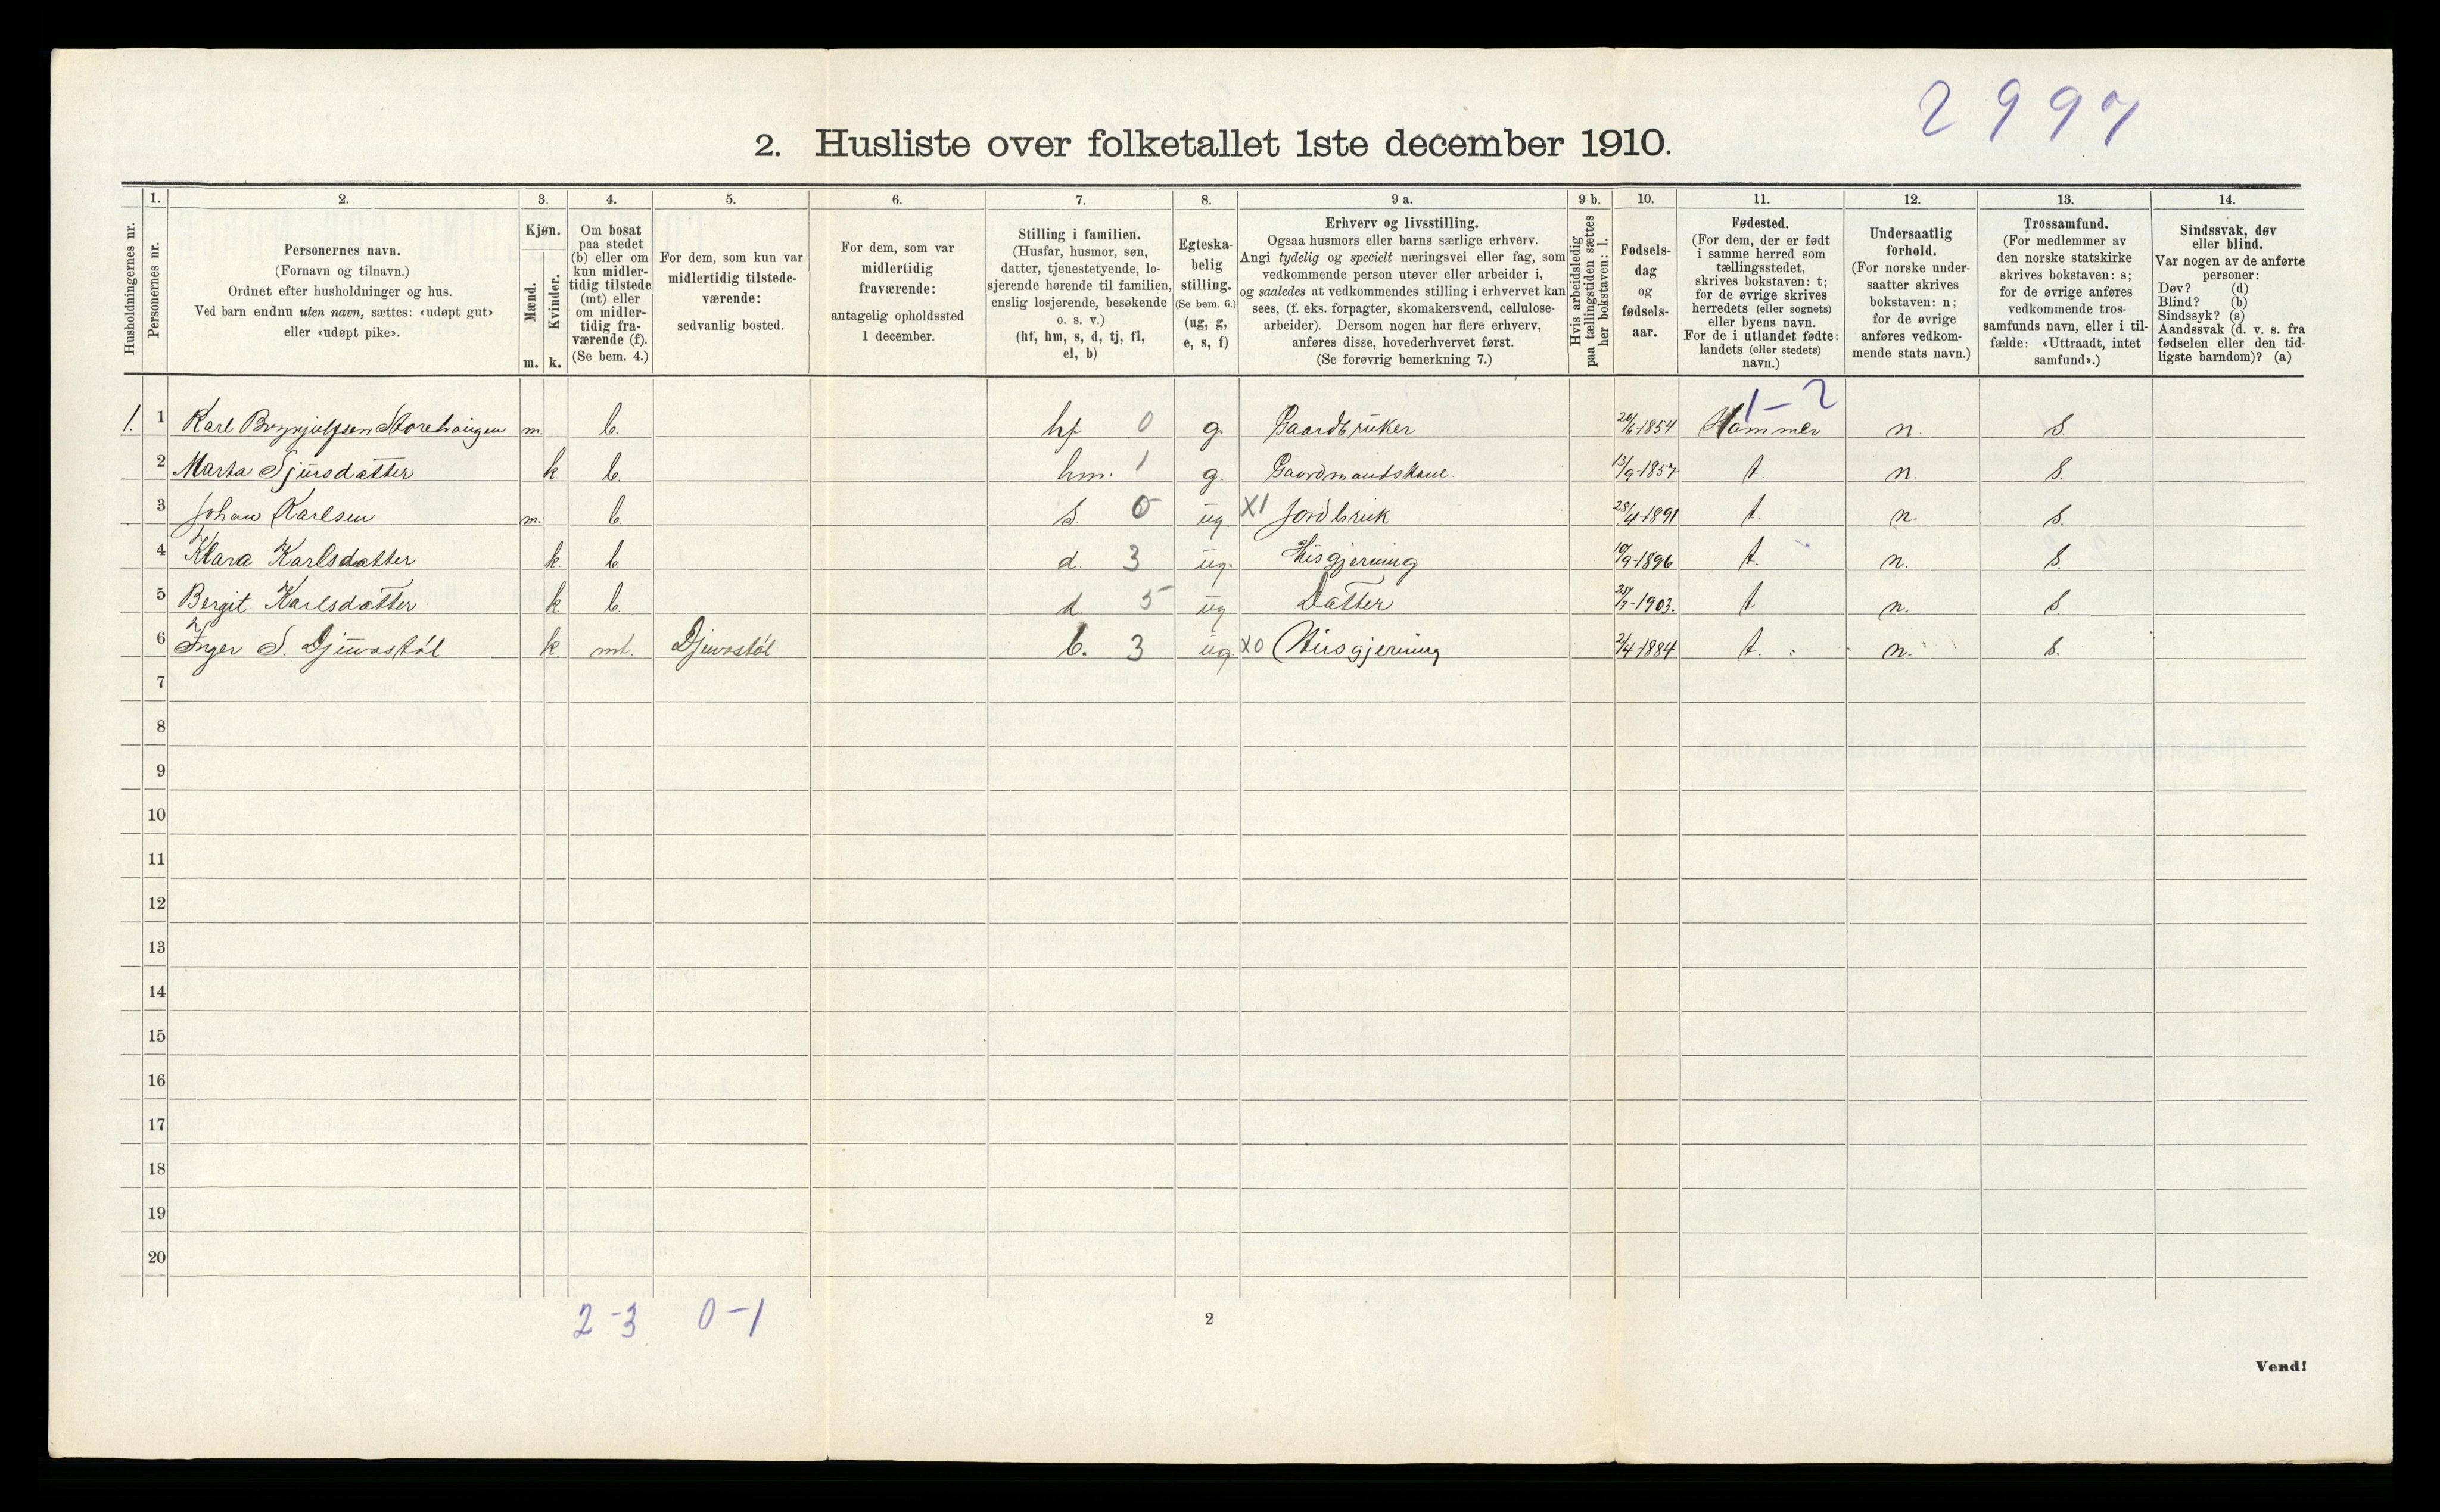 2997
2. Husliste over folketallet 1ste december 1910.
Husholdningernes nr.
1. Personernes nr.
2. Personernes navn.
(Fornavn og tilnavn.)
Ordnet efter husholdninger og hus.
Ved barn endnu uten navn, sættes: «udøpt gut»
eller «udøpt pike».
3. Kjøn.
Mænd. Kvinder.
m. k.
4. Om bosat
paa stedet
(b) eller om
kun midler-
tidig tilstede
(mt) eller
om midler-
tidig fra-
værende (f).
(Se bem. 4.)
5. For dem, som kun var
midlertidig tilstede-
værende:
sedvanlig bosted.
6. For dem, som var
midlertidig
fraværende:
antagelig opholdssted
1 december.
7. Stilling i familien.
(Husfar, husmor, søn,
datter, tjenestetyende, lo-
sjerende hørende til familien,
enslig losjerende, besøkende
o. s. v.)
(hf, hm, s, d, tj, fl,
el, b)
8. Egteska-
belig
stilling.
(Se bem. 6.)
(ug, g,
e, s, f)
9 a. Erhverv og livsstilling.
Ogsaa husmors eller barns særlige erhverv.
Angi tydelig og specielt næringsvei eller fag, som
vedkommende person utøver eller arbeider i,
og saaledes at vedkommendes stilling i erhvervet kan
sees, (f. eks. forpagter, skomakersvend, cellulose-
arbeider). Dersom nogen har flere erhverv,
anføres disse, hovederhvervet først.
(Se forøvrig bemerkning 7.)
9 b. Hvis arbeidsledig
paa tællingstiden sættes
her bokstaven: l.
10. Fødsels-
dag
og
fødsels-
aar.
11. Fødested.
(For dem, der er født
i samme herred som
tællingsstedet,
skrives bokstaven: t;
for de øvrige skrives
herredets (eller sognets)
eller byens navn.
For de i utlandet fødte:
landets (eller stedets)
navn.)
12. Undersaatlig
forhold.
(For norske under-
saatter skrives
bokstaven: n;
for de øvrige
anføres vedkom-
mende stats navn.)
13. Trossamfund.
(For medlemmer av
den norske statskirke
skrives bokstaven: s;
for de øvrige anføres
vedkommende tros-
samfunds navn, eller i til-
fælde: «Uttraadt, intet
samfund».)
14. Sindssvak, døv
eller blind.
Var nogen av de anførte
personer:
Døv? (d)
Blind? (b)
Sindssyk? (s)
Aandssvak (d. v. s. fra
fødselen eller den tid-
ligste barndom)? (a)
1-2
1. 1 Karl Brynjulfsen Storehaugen m. b. hf 0 g. Gaardbruker 1854 Hammer n. s.
2 Marta Sjursdatter k. b. hm. 1 g. Gaardmandskone. 13/9-1857 t. n. s.
3 Johan Karlsen m. b. s. 0 ug X1 Jordbruk 28/4-1891 t. n. s.
4 Klara Karlsdatter k. b. d. 3 ug. Husgjerning 10/9-1896 t. n. s.
5 Bergit Karlsdatter k. b. d. 5 ug Datter 1903. t n. s
6 Inger S. Djuvastøl k. mt. Djuvastøl b. 3 ug. X0 Husgjerning 2/4-1884 t. n. s.
7
8
9
10
11
12
13
14
15
16
17
18
19
20
2-3 0-1
2
Vend!